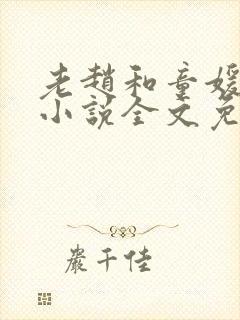 老趙和童媛
小說全文免
嚴千佳